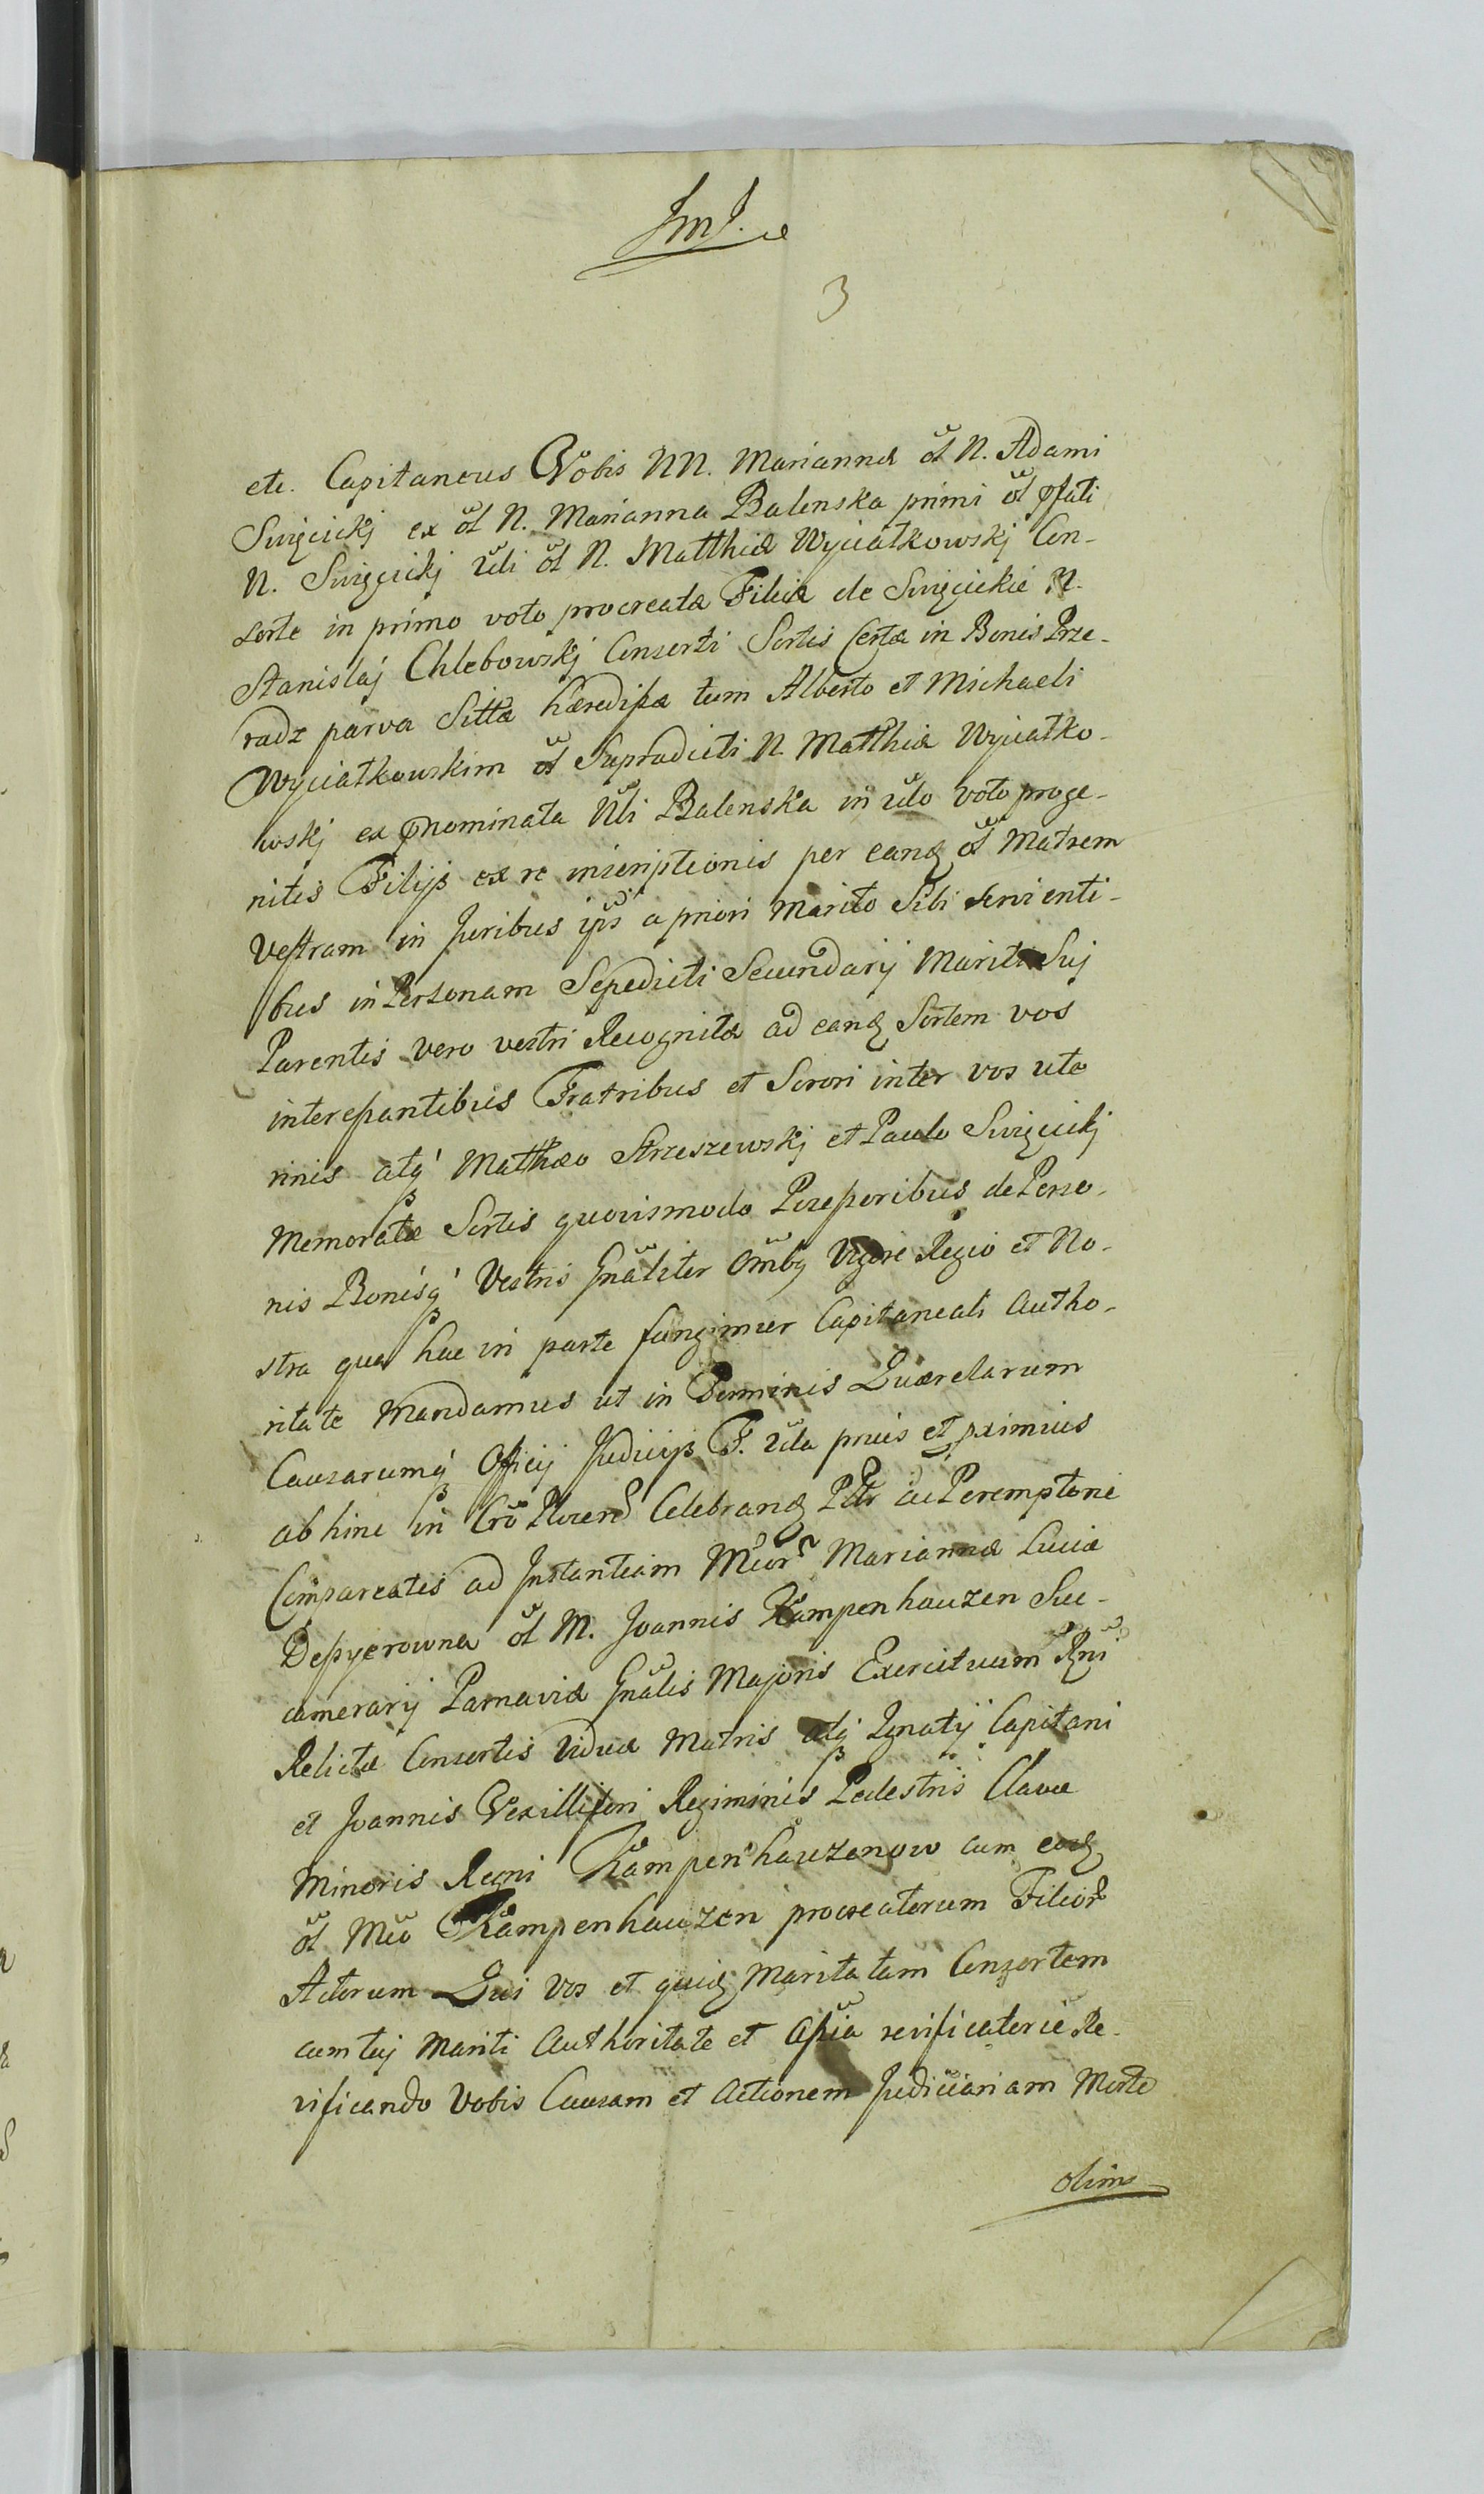 JmJ.
3
etc. Capitaneus Vobis NN. Mariannæ ol N. Adami
Swięcickj ex ol N. Marianna Balenska primi ol pfati
N. Swięcickj Udi ol N. Matthiæ Wyciatkowskj Con-
sorte in primo voto procreatæ Filiæ de Swięcickie N.
Stanislaj Chlebowskj Consorti Sortis Certæ in Bonis Prze-
radz parva Sittæ hæredissæ tum Alberto et Michaeli
Wyciatkowskim ol Supradicti N. Matthiæ Wyciatko-
wskj ex pnominata Nli Balenska in Udo voto proge-
nitis Filijs ex re inscriptionis per eand ol Matrem
Vestram in Juribus ips a priori Marito Sibi servienti-
bus in Personam Sepedicti Secundarij Mariti Suj
Parentis vero vestri Recognitæ ad eand Sortem vos
interessantibus Fratribus et Sorori inter vos ute
rinis atq Mathæo Strzeszewskj et Paulo Swięcickj
Memoratæ Sortis quovismodo Possessoribus de Perso-
nis Bonisq Vestris Gnaliter Ombq Vigore Regio et No-
stra qua hac in parte fungimur Capitaneali Autho-
ritate Mandamus ut in Terminis Quærelarum
Causarumq Officij Judicijs F. Uda prius et pximius
ab hinc in Cro Plocen Celebrand Pltr ac Peremptorie
Compareatis ad Instantiam Mcor Mariannæ Luciæ
Depyerowna ol M. Joannis Kampenhauzen Suc-
camerarij Parnaviæ Gnalis Majoris Exercituum Rni
Relictæ Consortis Viduæ Matris atq Ignatij Capitani
et Joannis Vexilliferi Regiminis Pedestris Clavæ
Minoris Regni Kampenhauzenow cum eod
ol Mco Kampenhauzen procreatorum Filior
Actorum Qui vos et quid Maritatam Consortem
cum tuj Mariti Authoritate et Assia revificatorie Re-
vificando Vobis Causam et Actionem Judiciariam Morte
olim